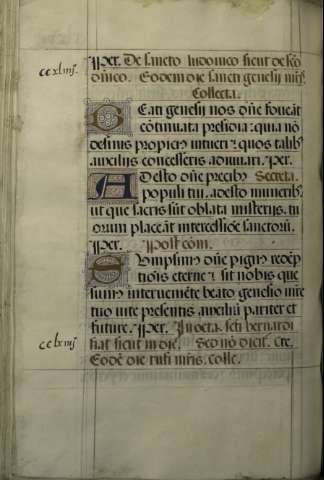 ccxliiij. xper. De sancto ludouico sicut de sc̃o
dn̄ico. Eodem die sancti genesij mr̃is.
Collecta.
BEati genesij nos dñe foueāt
cōtinuata presidia: quia nō
desinis propicius intueri: quos talibꝰ
auxilijs concesseris adiuuari. per.
ADesto dñe precibꝰ Secreta.
populi tui. adesto muneribꝰ
ut que sacris sūt oblata misterijs. tu
orum placeāt intercessiōe sanctorū.
xper. Post com̄.
SUmpsimꝰ dñe pignꝰ redēp
tiōis eterne: sit nobis que
sumꝰ interueniēte beato genesio mr̃e
tuo uite presentis auxiliū pariter et
future. xper. In octa. sc̃i bernardi
fiat sicut in die. Eodē die rufi mr̃is. Colle.